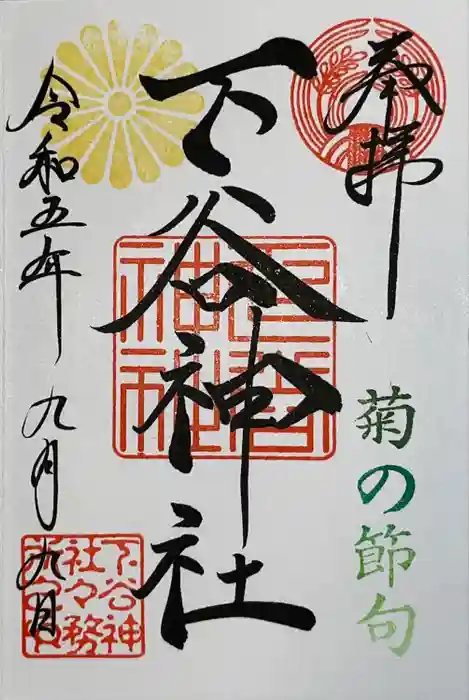 奉拝
菊の節句
下谷神社
下谷
神社
令和五年 九月九日
下谷神
社々務